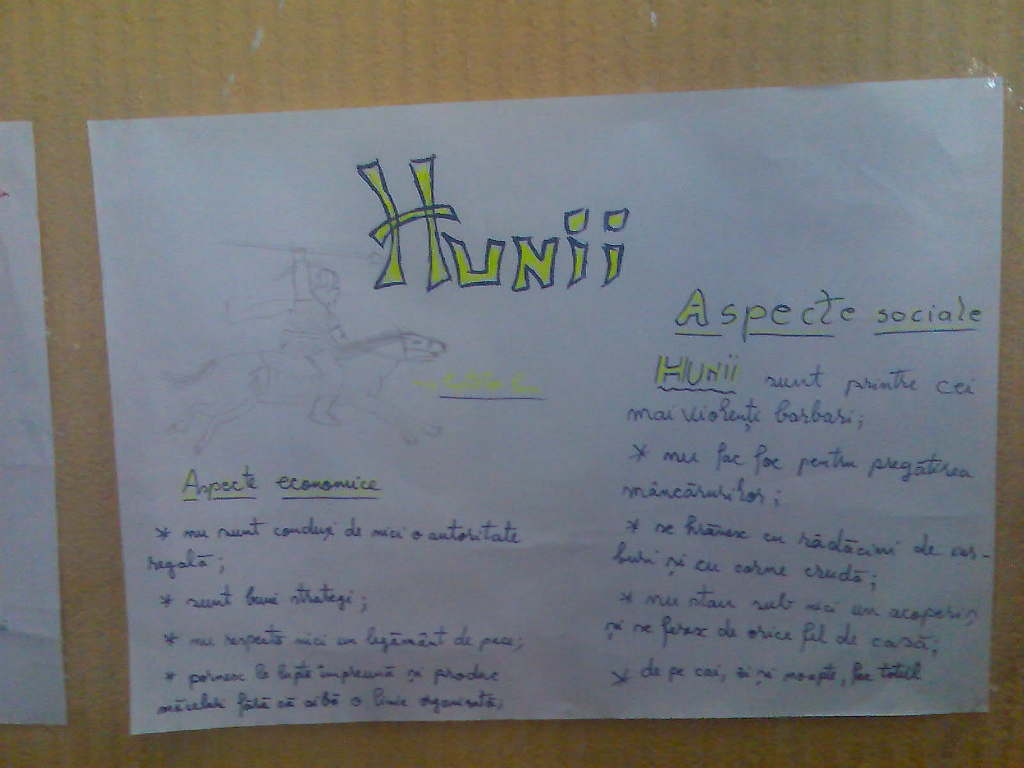 Hunii
Aspecte economice
* nu sunt conduși de nici o autoritate
regală;
* sunt buni strategi;
* nu respectă nici un legământ de pace;
* pornesc la lupte împreună și produc
măceluri fără să aibă o linie organizată;
Aspecte sociale
HUNII sunt printre cei
mai violenți barbari;
* nu fac foc pentru pregătirea
mâncărurilor;
* se hrănesc cu rădăcini de ier-
buri și cu carne crudă;
* nu stau sub nici un acoperiș
și se feresc de orice fel de casă;
* de pe cai, zi și noapte, fac totul